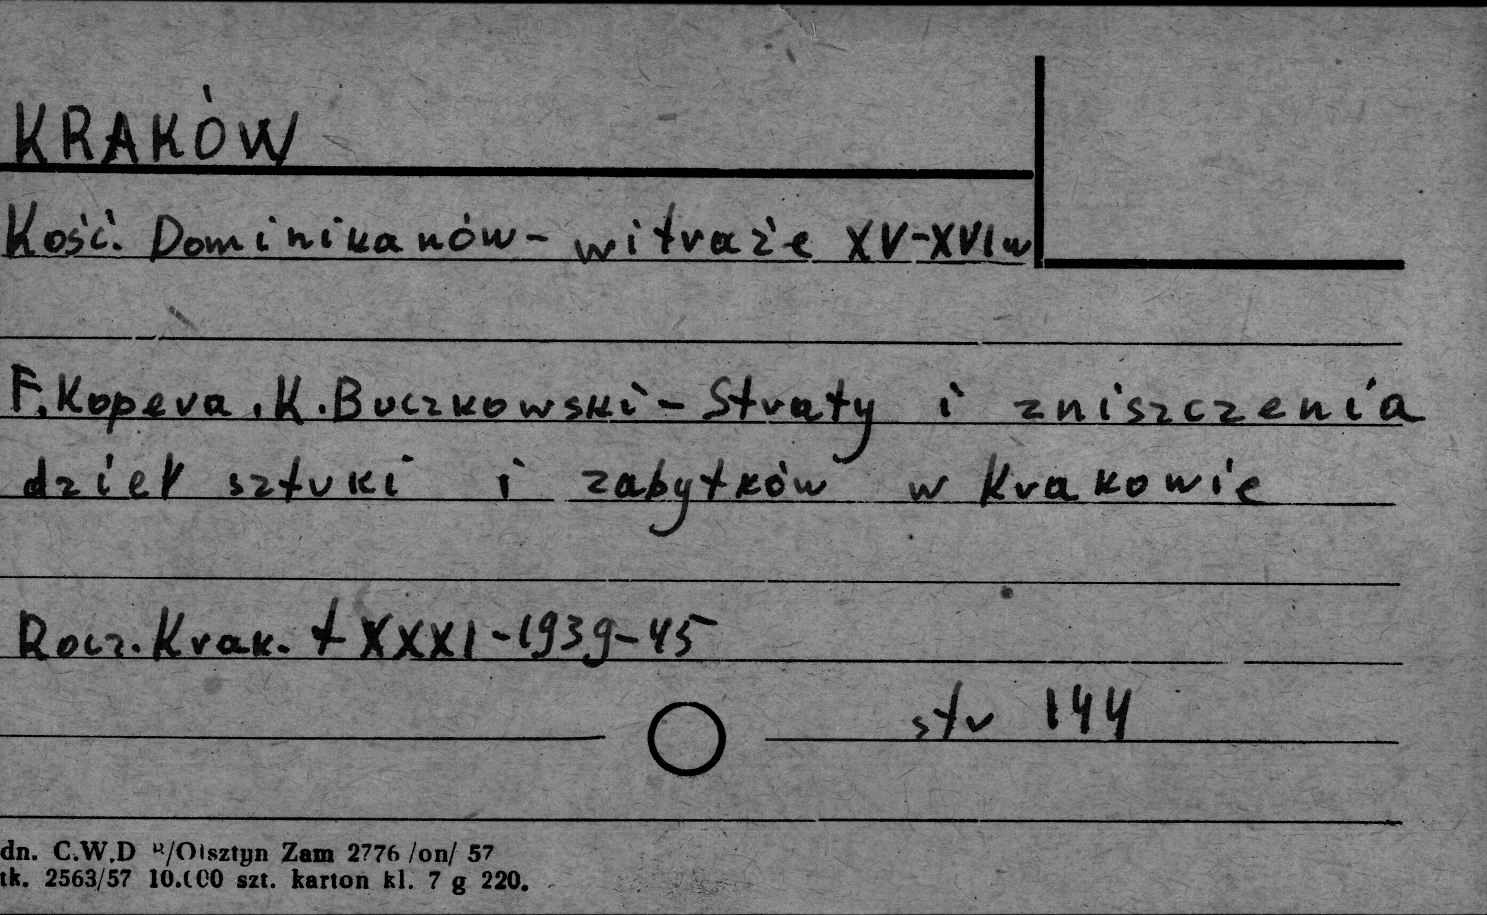 KRAKÓW
Kość. Dominikanów - witraże XV-XVI w
F. Kopera, K. Buczkowski - Straty i zniszczenia
dzieł sztuki i zabytków w Krakowie
Rocz. Krak. t XXXI - 1939-45
str 144
dn. C.W.D R/Olsztyn Zam 2776 /on/ 57
tk. 2563/57 10.000 szt. karton kl. 7 g 220.